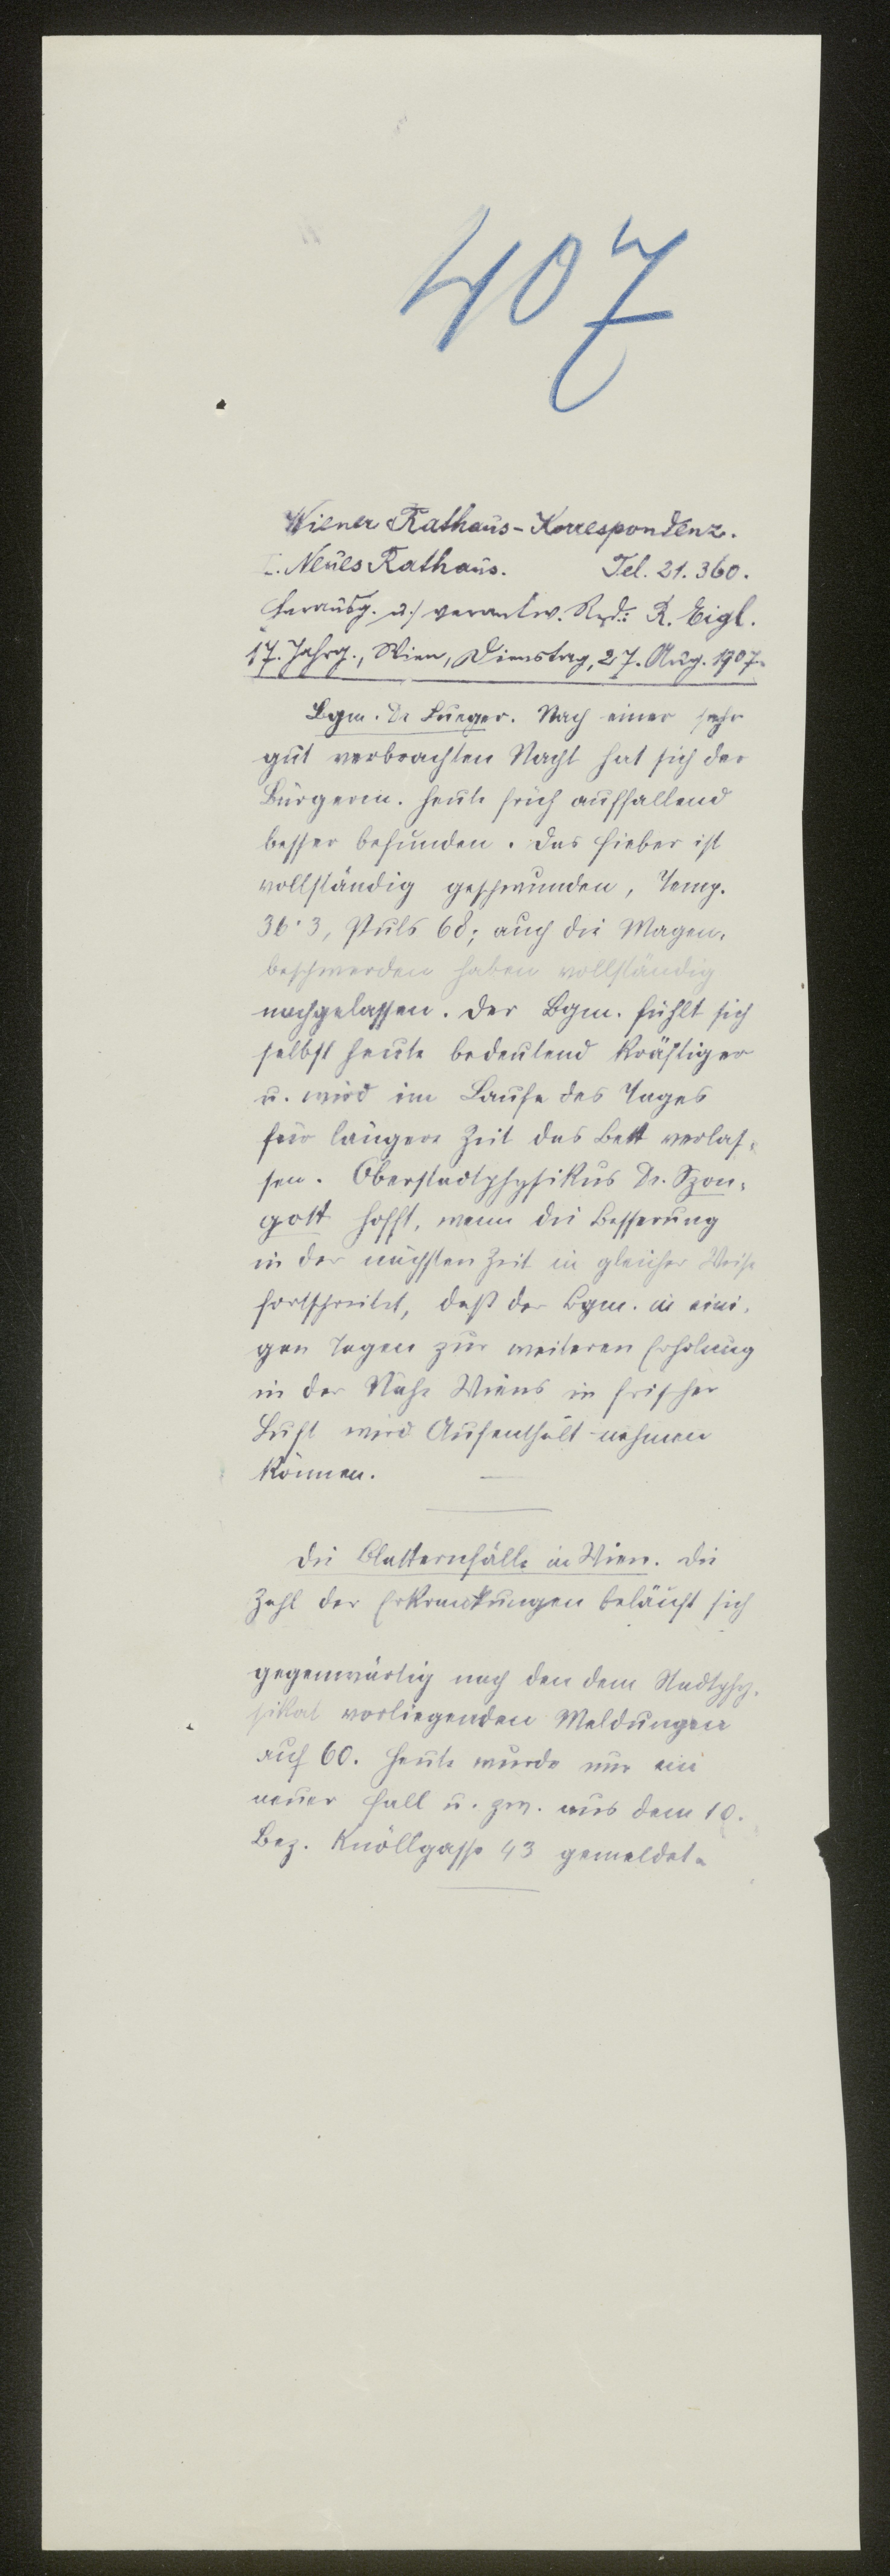 407
Wiener Rathaus-Korrespondenz.
I. Neues Rathaus. Tel. 21.360.
Herausg. u. verantw. Red.: R. Eigl.
17. Jahrg., Wien, Dienstag, 27. Aug. 1907.
Bgm. Dr Lueger. Nach einer sehr
gut verbrachten Nacht hat sich der
Bürgerm. heute früh auffallend
besser befunden. Das Fieber ist
vollständig geschwunden, Temp.
36·3, Puls 68; auch die Magen-
beschwerden haben vollständig
nachgelassen. Der Bgm. fühlt sich
selbst heute bedeutend kräftiger
u. wird im Laufe des Tages
für längere Zeit das Bett verlas-
sen. Oberstadtphysikus Dr. Szon-
gott hofft, wenn die Besserung
in der nächsten Zeit in gleicher Weise
fortschreitet, daß der Bgm. in eini-
gen Tagen zur weiteren Erholung
in der Nähe Wiens in frischer
Luft wird Aufenthalt nehmen
können.
Die Blatternfälle in Wien. Die
Zahl der Erkrankungen beläuft sich
gegenwärtig nach den dem Stadtphy-
sikat vorliegenden Meldungen
auf 60. Heute wurde nur ein
neuer Fall u. zw. aus dem 10.
Bez. Knöllgasse 43 gemeldet.